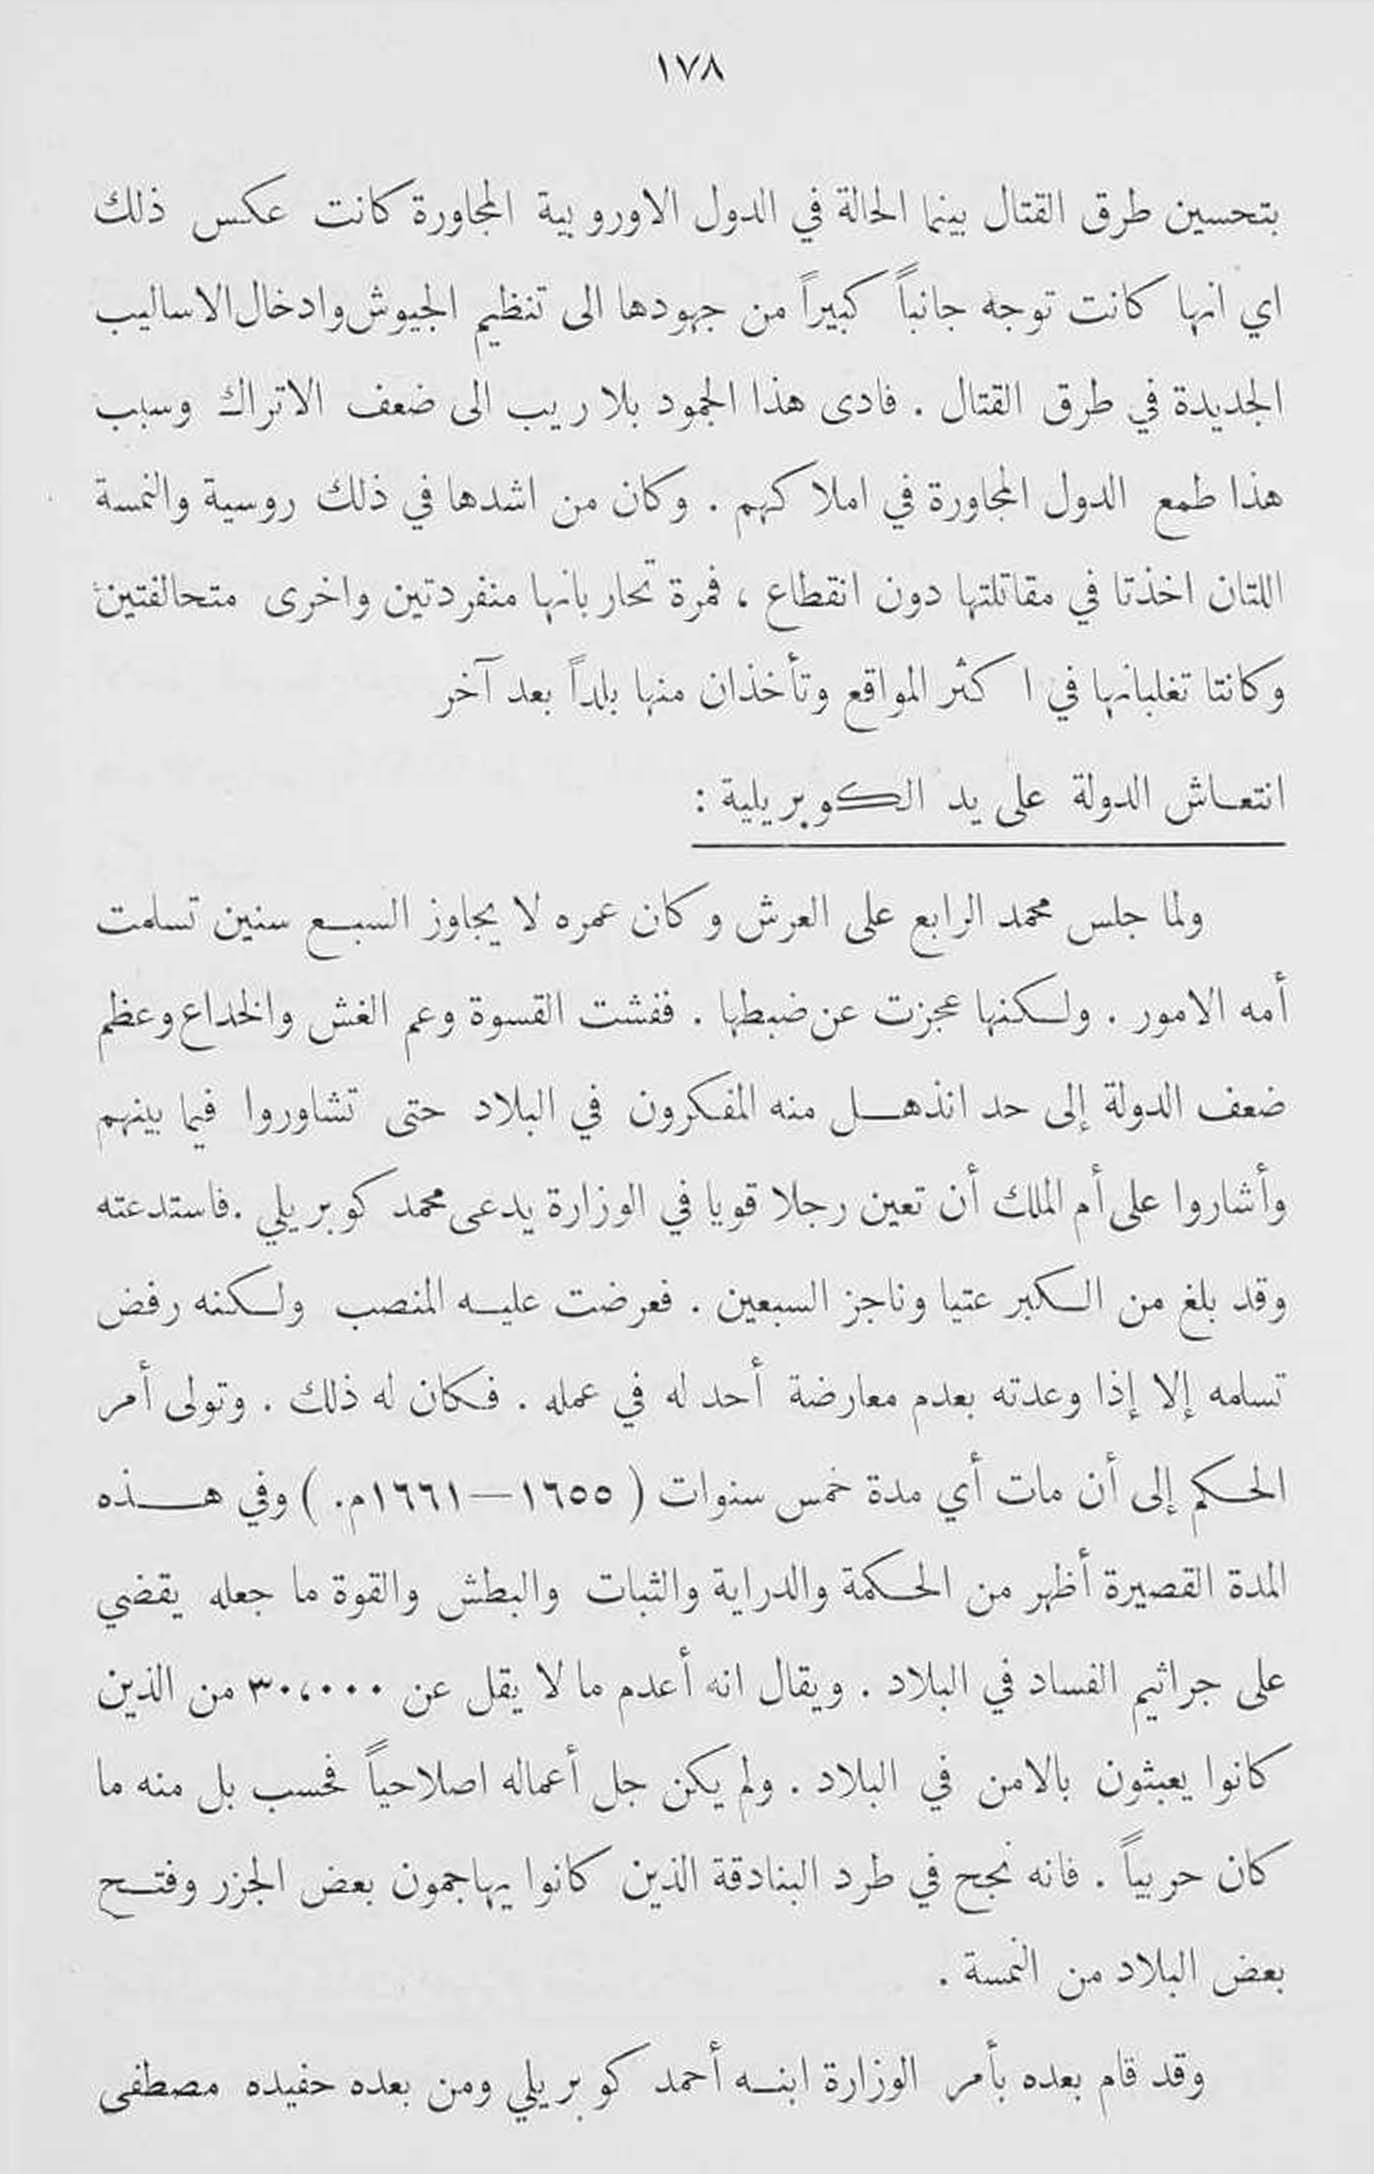 ١٧٨
بتحسين طرق القتال بينما الحالة في الدول الاوروبية المجاورة كانت عكس ذلك
اي انها كانت توجه جانباً كبيراً من جهودها الى تنظيم الجيوش وادخال الاساليب
الجديدة في طرق القتال . فادى هذا الجمود بلا ريب الى ضعف الاتراك وسبب
هذا طمع الدول المجاورة في املاكهم . وكان من اشدها في ذلك روسية والنمسة
اللتان اخذتا في مقاتلتها دون انقطاع ، فمرة تحاربانها منفردتين واخرى متحالفتين
وكانتا تغلبانها في اكثر المواقع وتأخذان منها بلداً بعد آخر
انتعاش الدولة على يد الكوبريلية :
ولما جلس محمد الرابع على العرش وكان عمره لا يجاوز السبع سنين تسلمت
أمه الامور . ولكنها عجزت عن ضبطها . ففشت القسوة وعم الغش والخداع وعظم
ضعف الدولة إلى حد انذهل منه المفكرون في البلاد حتى تشاوروا فيما بينهم
وأشاروا على أم الملك أن تعين رجلا قويا في الوزارة يدعى محمد كوبريلي . فاستدعته
وقد بلغ من الكبر عتيا وناجز السبعين . فعرضت عليه المنصب ولكنه رفض
تسلمه إلا إذا وعدته بعدم معارضة أحد له في عمله . فكان له ذلك . وتولى أمر
الحكم إلى أن مات أي مدة خمس سنوات ( ١٦٥٥ — ١٦٦١م. ) وفي هذه
المدة القصيرة أظهر من الحكمة والدراية والثبات والبطش والقوة ما جعله يقضي
على جراثيم الفساد في البلاد . ويقال انه أعدم ما لا يقل عن ٣٠،٠٠٠ من الذين
كانوا يعبثون بالامن في البلاد . ولم يكن جل أعماله اصلاحياً فحسب بل منه ما
كان حربياً . فانه نجح في طرد البنادقة الذين كانوا يهاجمون بعض الجزر وفتح
بعض البلاد من النمسة .
وقد قام بعده بأمر الوزارة ابنه أحمد كوبريلي ومن بعده حفيده مصطفى